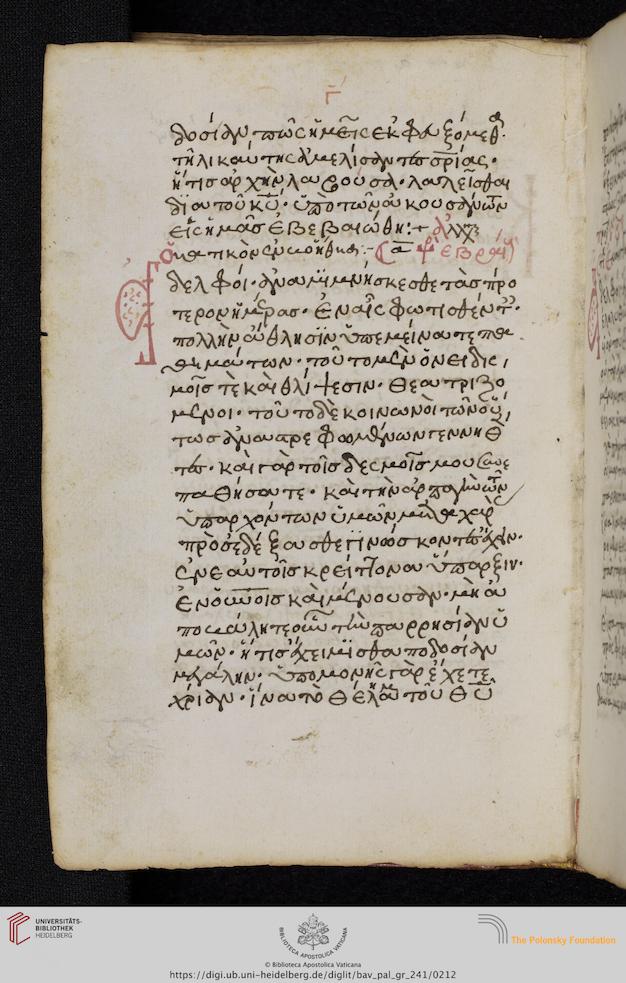 Γ
δοσίαν πῶς ἡμεῖς ἐκφευξόμεθ
τηλικαύτης ἀμελήσαντες σρίας·
ἥτις ἀρχὴν λαβοῦσα· λαλεῖσθαι
διὰ τοῦ κυ· ὑπὸ τῶν ἀκουσάντων
εἰς ἡμᾶς ἐβεβαιώθη:+
πρὸς ἑβραί
δελφοί· ἀναμιμνήσκεσθε τὰς πρό
τερον ἡμέρας· ἐν αἷς φωτισθέντ·
πολλὴν ἄθλησιν ὑπεμείνατε πα
θημάτων· τοῦτο μὲν ὀνειδισ
μοῖς τὲ καὶ θλίψεσιν· θεατριζό
μενοι· τοῦτο δὲ κοινωνοὶ τῶν οὕ
τως ἀναστρεφομένων γεννηθ
τες· καὶ γὰρ τοῖς δεσμοῖς μου συνε
παθήσατε· καὶ τὴν ἁρπαγὴν τῶν
ὑπαρχόντων ὑμῶν μετὰ χαρ
προσεδέξασθε γινώσκοντες ἔχειν·
ἐν ἑαυτοῖς κρείττονα ὕπαρξιν·
ἐν οὐνοις καὶ μένουσαν· μὴ ἀ
ποβάλητε οὖν τὴν παρρησίαν ὑ
μῶν· ἥτις ἔχει μισθαποδοσίαν
μεγάλην· ὑπομονῆς γὰρ ἔχετε
χρείαν· ἵνα τὸ θέλημα τοῦ θυ
UNIVERSITÄTS-
BIBLIOTHEK
HEIDELBERG
BIBLIOTECA APOSTOLICA VATICANA
The Polonsky Foundation
© Biblioteca Apostolica Vaticana
https://digi.ub.uni-heidelberg.de/diglit/bav_pal_gr_241/0212